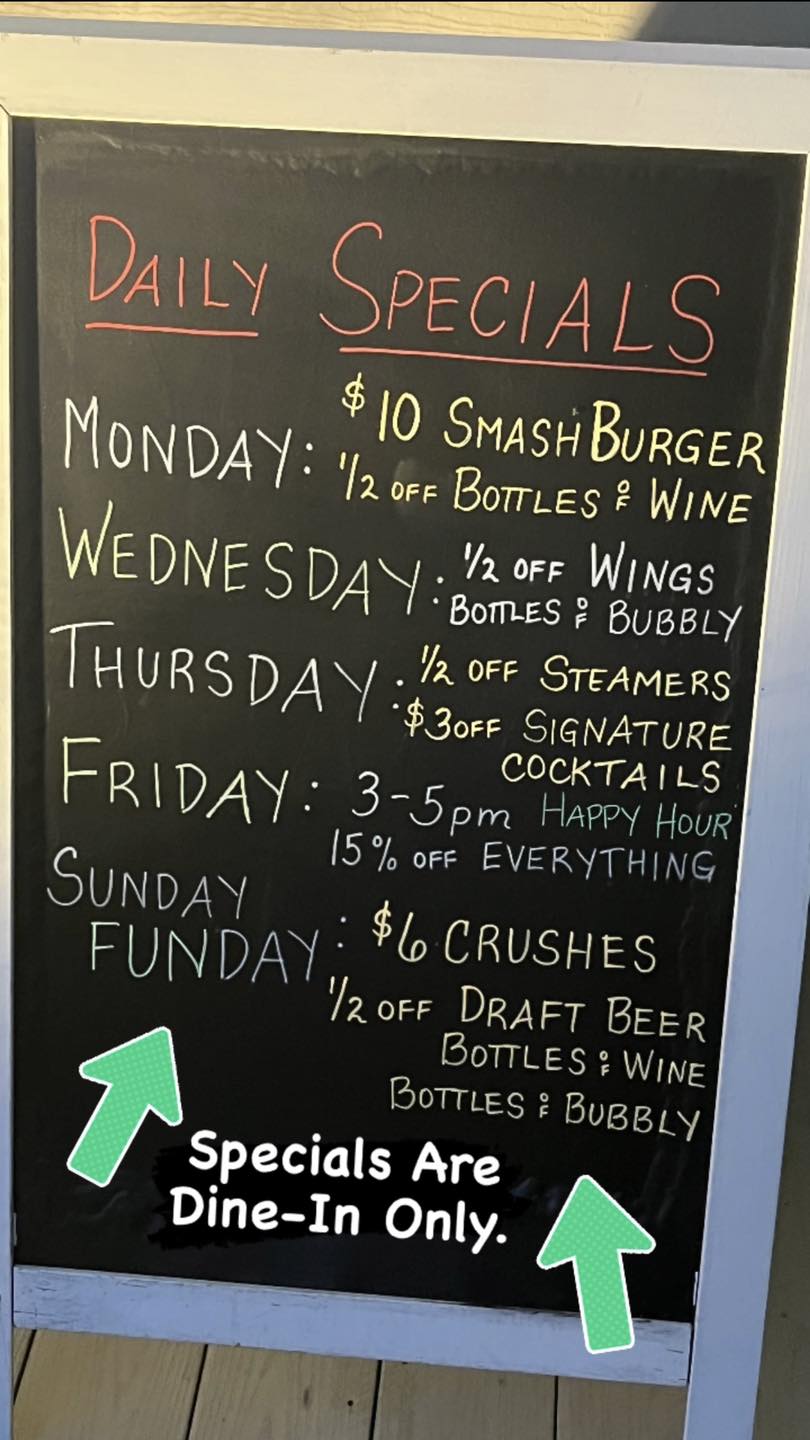 DAILY SPECIALS
MONDAY: $10 SMASHBURGER
1/2 OFF BOTTLES OF WINE
WEDNESDAY: 1/2 OFF WINGS
BOTTLES OF BUBBLY
THURSDAY: 1/2 OFF STEAMERS
$3 OFF SIGNATURE
COCKTAILS
FRIDAY: 3-5pm HAPPY HOUR
15% OFF EVERYTHING
SUNDAY
FUNDAY: $6 CRUSHES
1/2 OFF DRAFT BEER
BOTTLES OF WINE
BOTTLES OF BUBBLY
Specials Are
Dine-In Only.